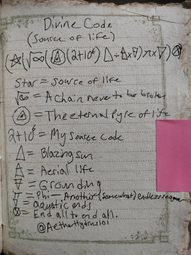 Divine Code
(Source of life)
(☆(√∞(Ⓐ)(2+10⁶)(△÷△×▽)π×▽)⊗
Star = Source of life
√∞ = A chain never to be broken
Ⓐ = The external Pyre of life
2+10⁶ = My source code
△ = Blazing sun
△ = Aerial life
▽ = Grounding
π = Phi - Another (Somewhat) endless
▽ = aquatic ends
⊗ = End all to end all.